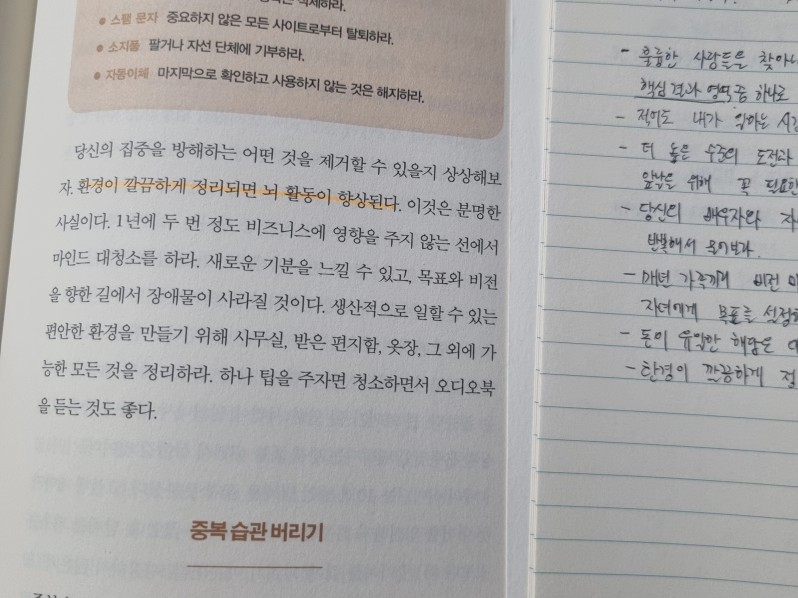 삭제하라.
• 스팸 문자 중요하지 않은 모든 사이트로부터 탈퇴하라.
• 소지품 팔거나 자선 단체에 기부하라.
• 자동이체 마지막으로 확인하고 사용하지 않는 것은 해지하라.
당신의 집중을 방해하는 어떤 것을 제거할 수 있을지 상상해보
자. 환경이 깔끔하게 정리되면 뇌 활동이 향상된다. 이것은 분명한
사실이다. 1년에 두 번 정도 비즈니스에 영향을 주지 않는 선에서
마인드 대청소를 하라. 새로운 기분을 느낄 수 있고, 목표와 비전
을 향한 길에서 장애물이 사라질 것이다. 생산적으로 일할 수 있는
편안한 환경을 만들기 위해 사무실, 받은 편지함, 옷장, 그 외에 가
능한 모든 것을 정리하라. 하나 팁을 주자면 청소하면서 오디오북
을 듣는 것도 좋다.
중복 습관 버리기
- 훌륭한 사람들을 찾아
핵심 결과 영역 중 하나로
- 적어도 내가 원하는
- 더 높은 수준의 도전과
위해 꼭 필요한
- 당신의 배우자와
반복해서 읽어보라.
- 매년 가족끼리 비전
자녀에게 목표를 설정하
- 돈이 유일한 해답은
- 환경이 깔끔하게 정